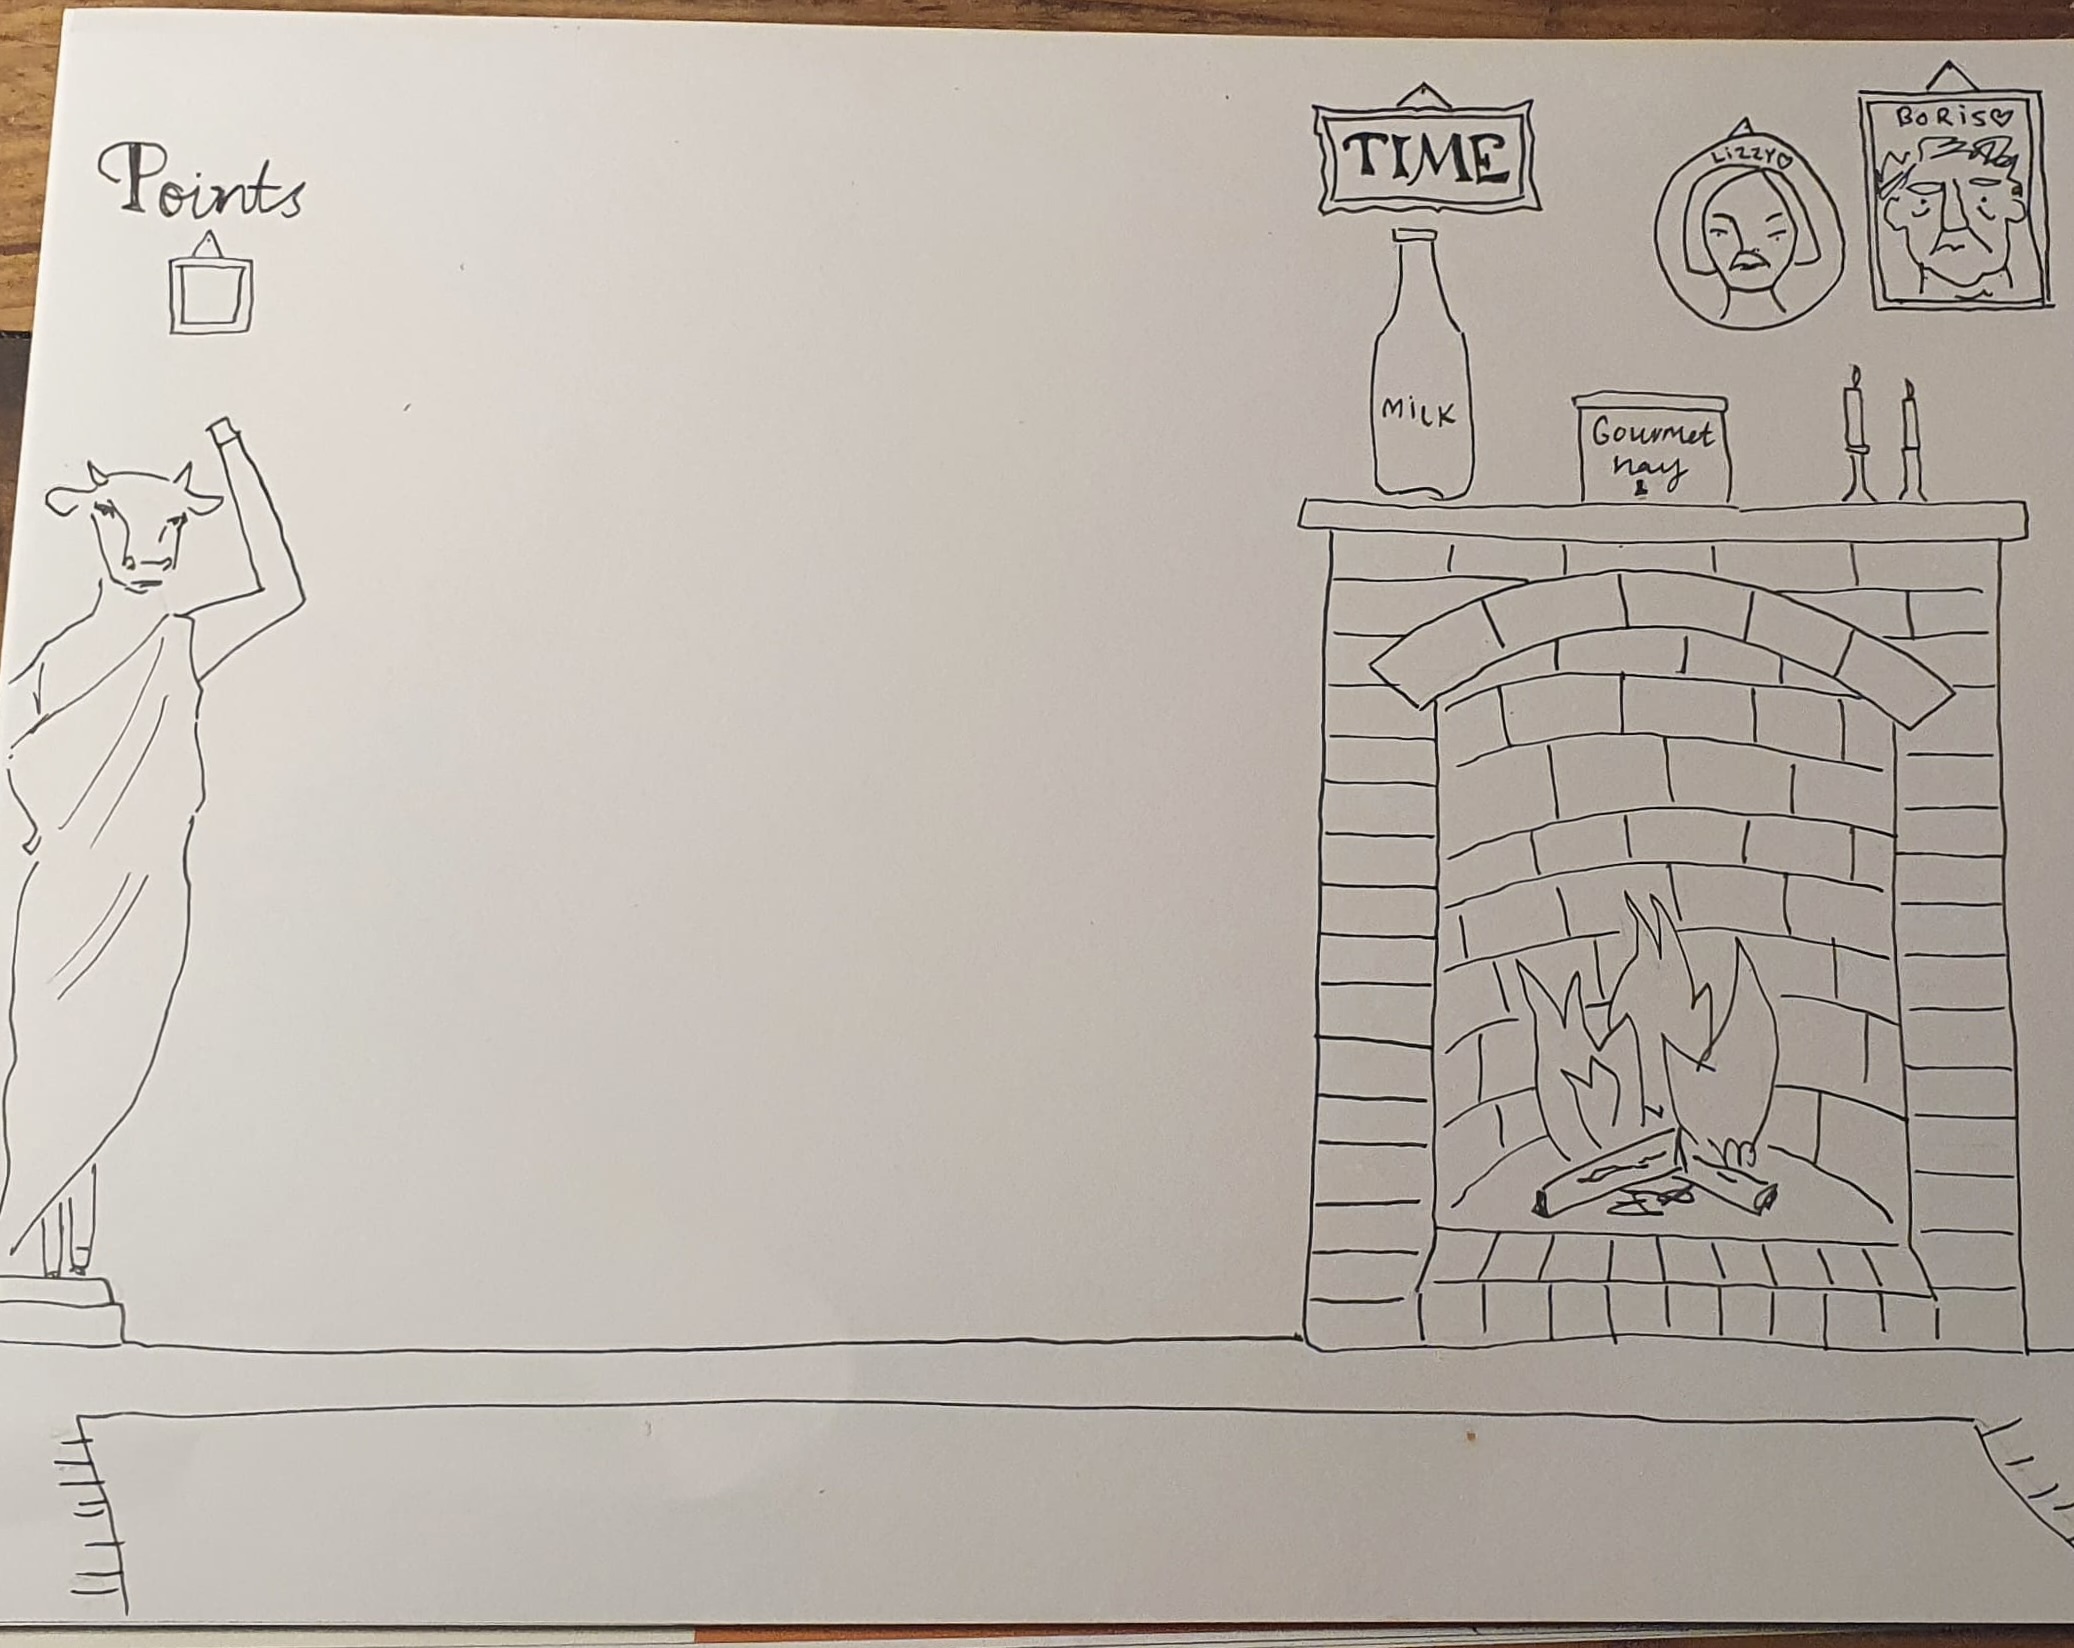 Points
TIME
LIZZY♡
BORiS♡
MiLK
Gourmet
hay
&